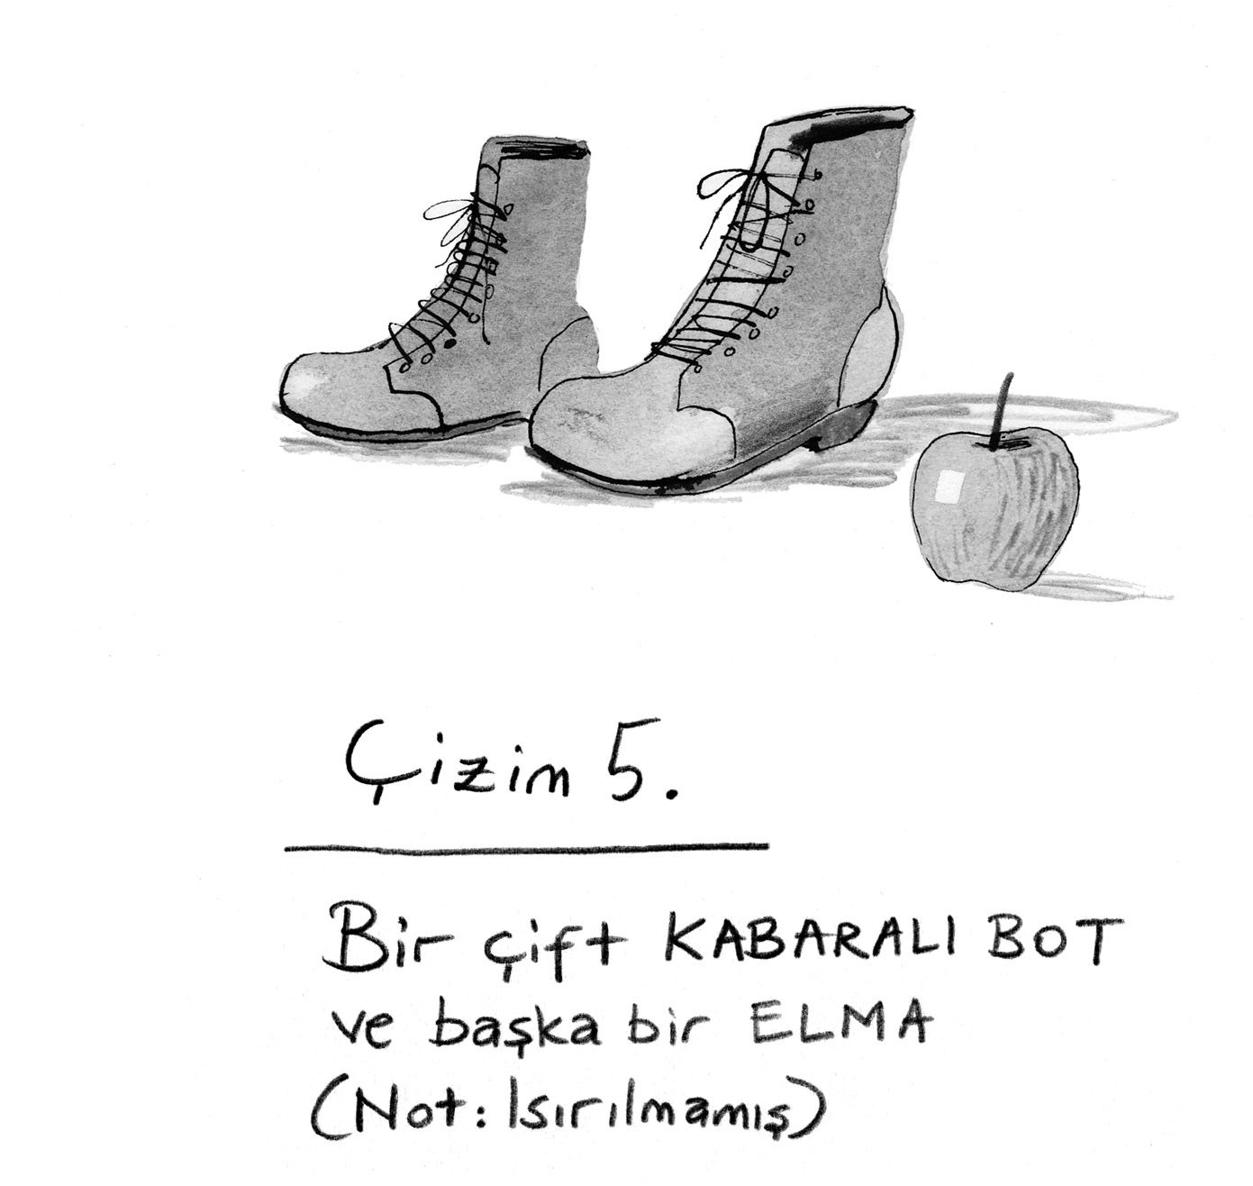 Çizim 5.
Bir çift KABARALI BOT
ve başka bir ELMA
(Not: Isırılmamış)